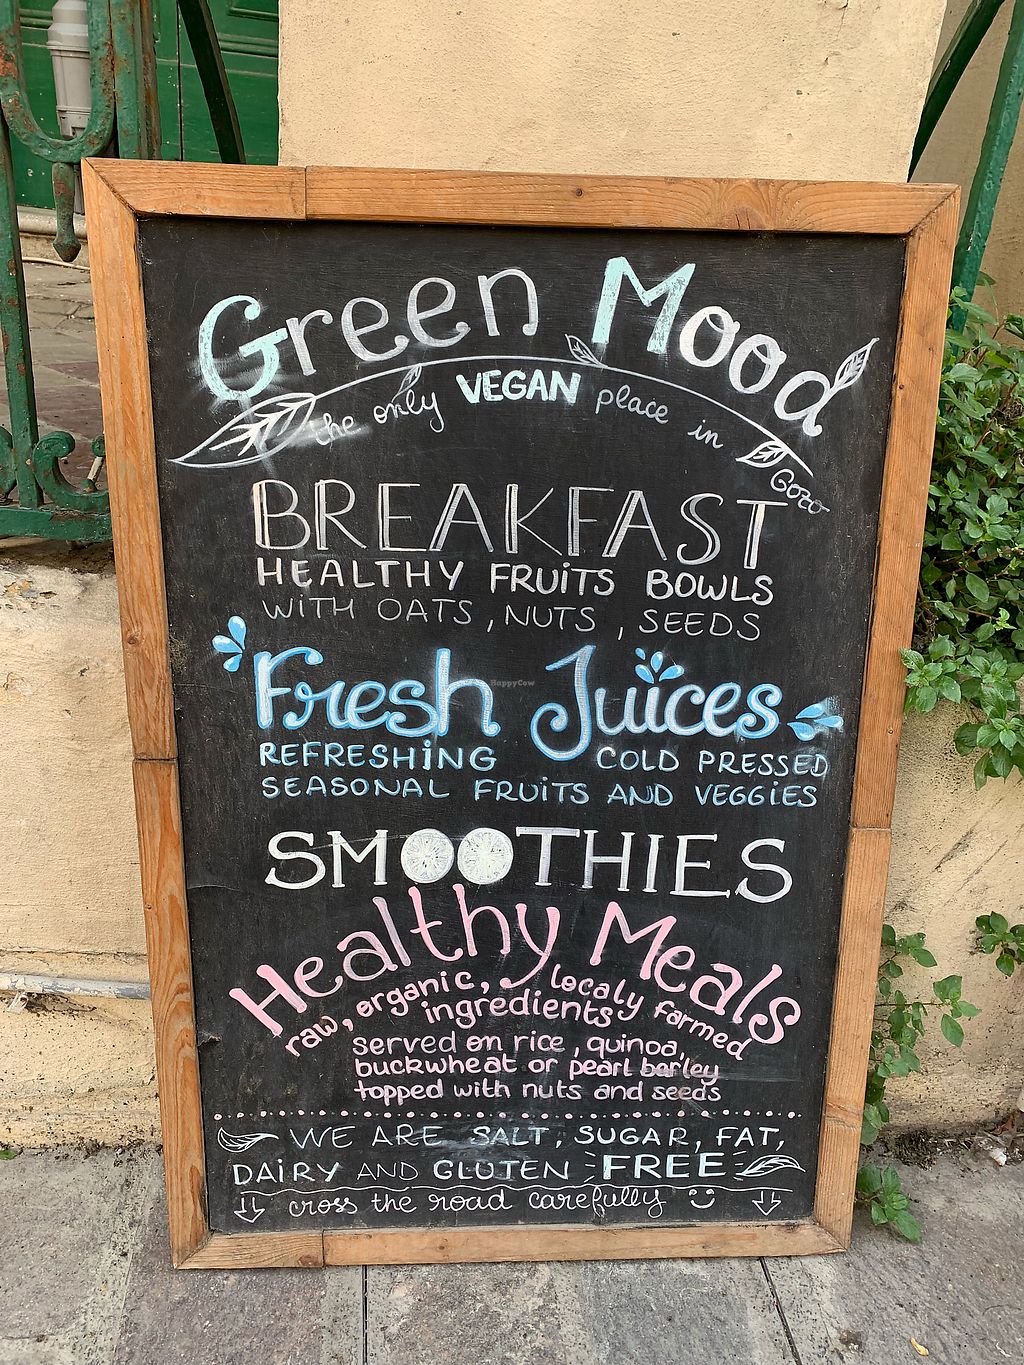 Green Mood
the only VEGAN place in Gozo
BREAKFAST
HEALTHY FRUITS BOWLS
WITH OATS, NUTS, SEEDS
Fresh Juices
HappyCow
REFRESHING COLD PRESSED
SEASONAL FRUITS AND VEGGIES
SMOOTHIES
Healthy Meals
raw, organic, localy farmed
ingredients
served on rice, quinoa,
buckwheat or pearl barley
topped with nuts and seeds
WE ARE SALT, SUGAR, FAT,
DAIRY AND GLUTEN FREE
cross the road carefully